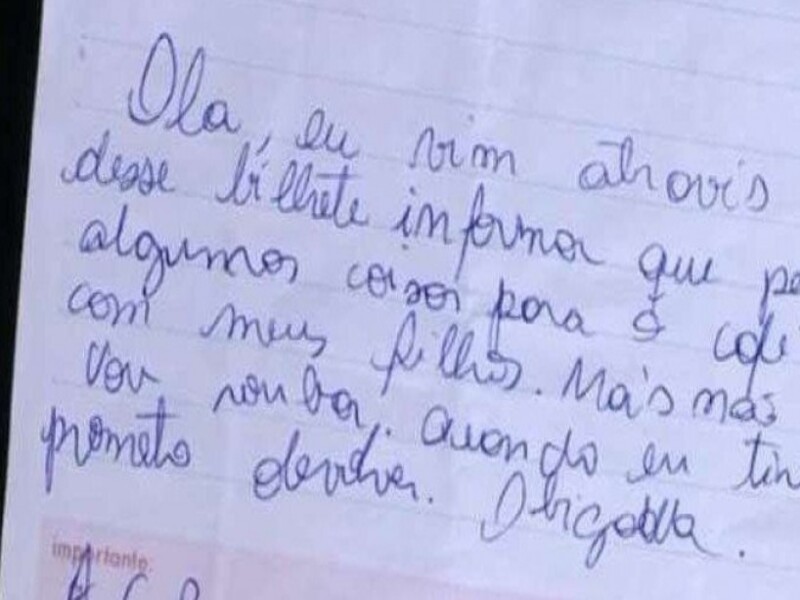 Ola, eu vim atravis
desse bilhete informar que
algumas coisas para o
com meus filhos. Mais mas
vou roubar. Quando eu
prometo devolver. Obigada.
importante: